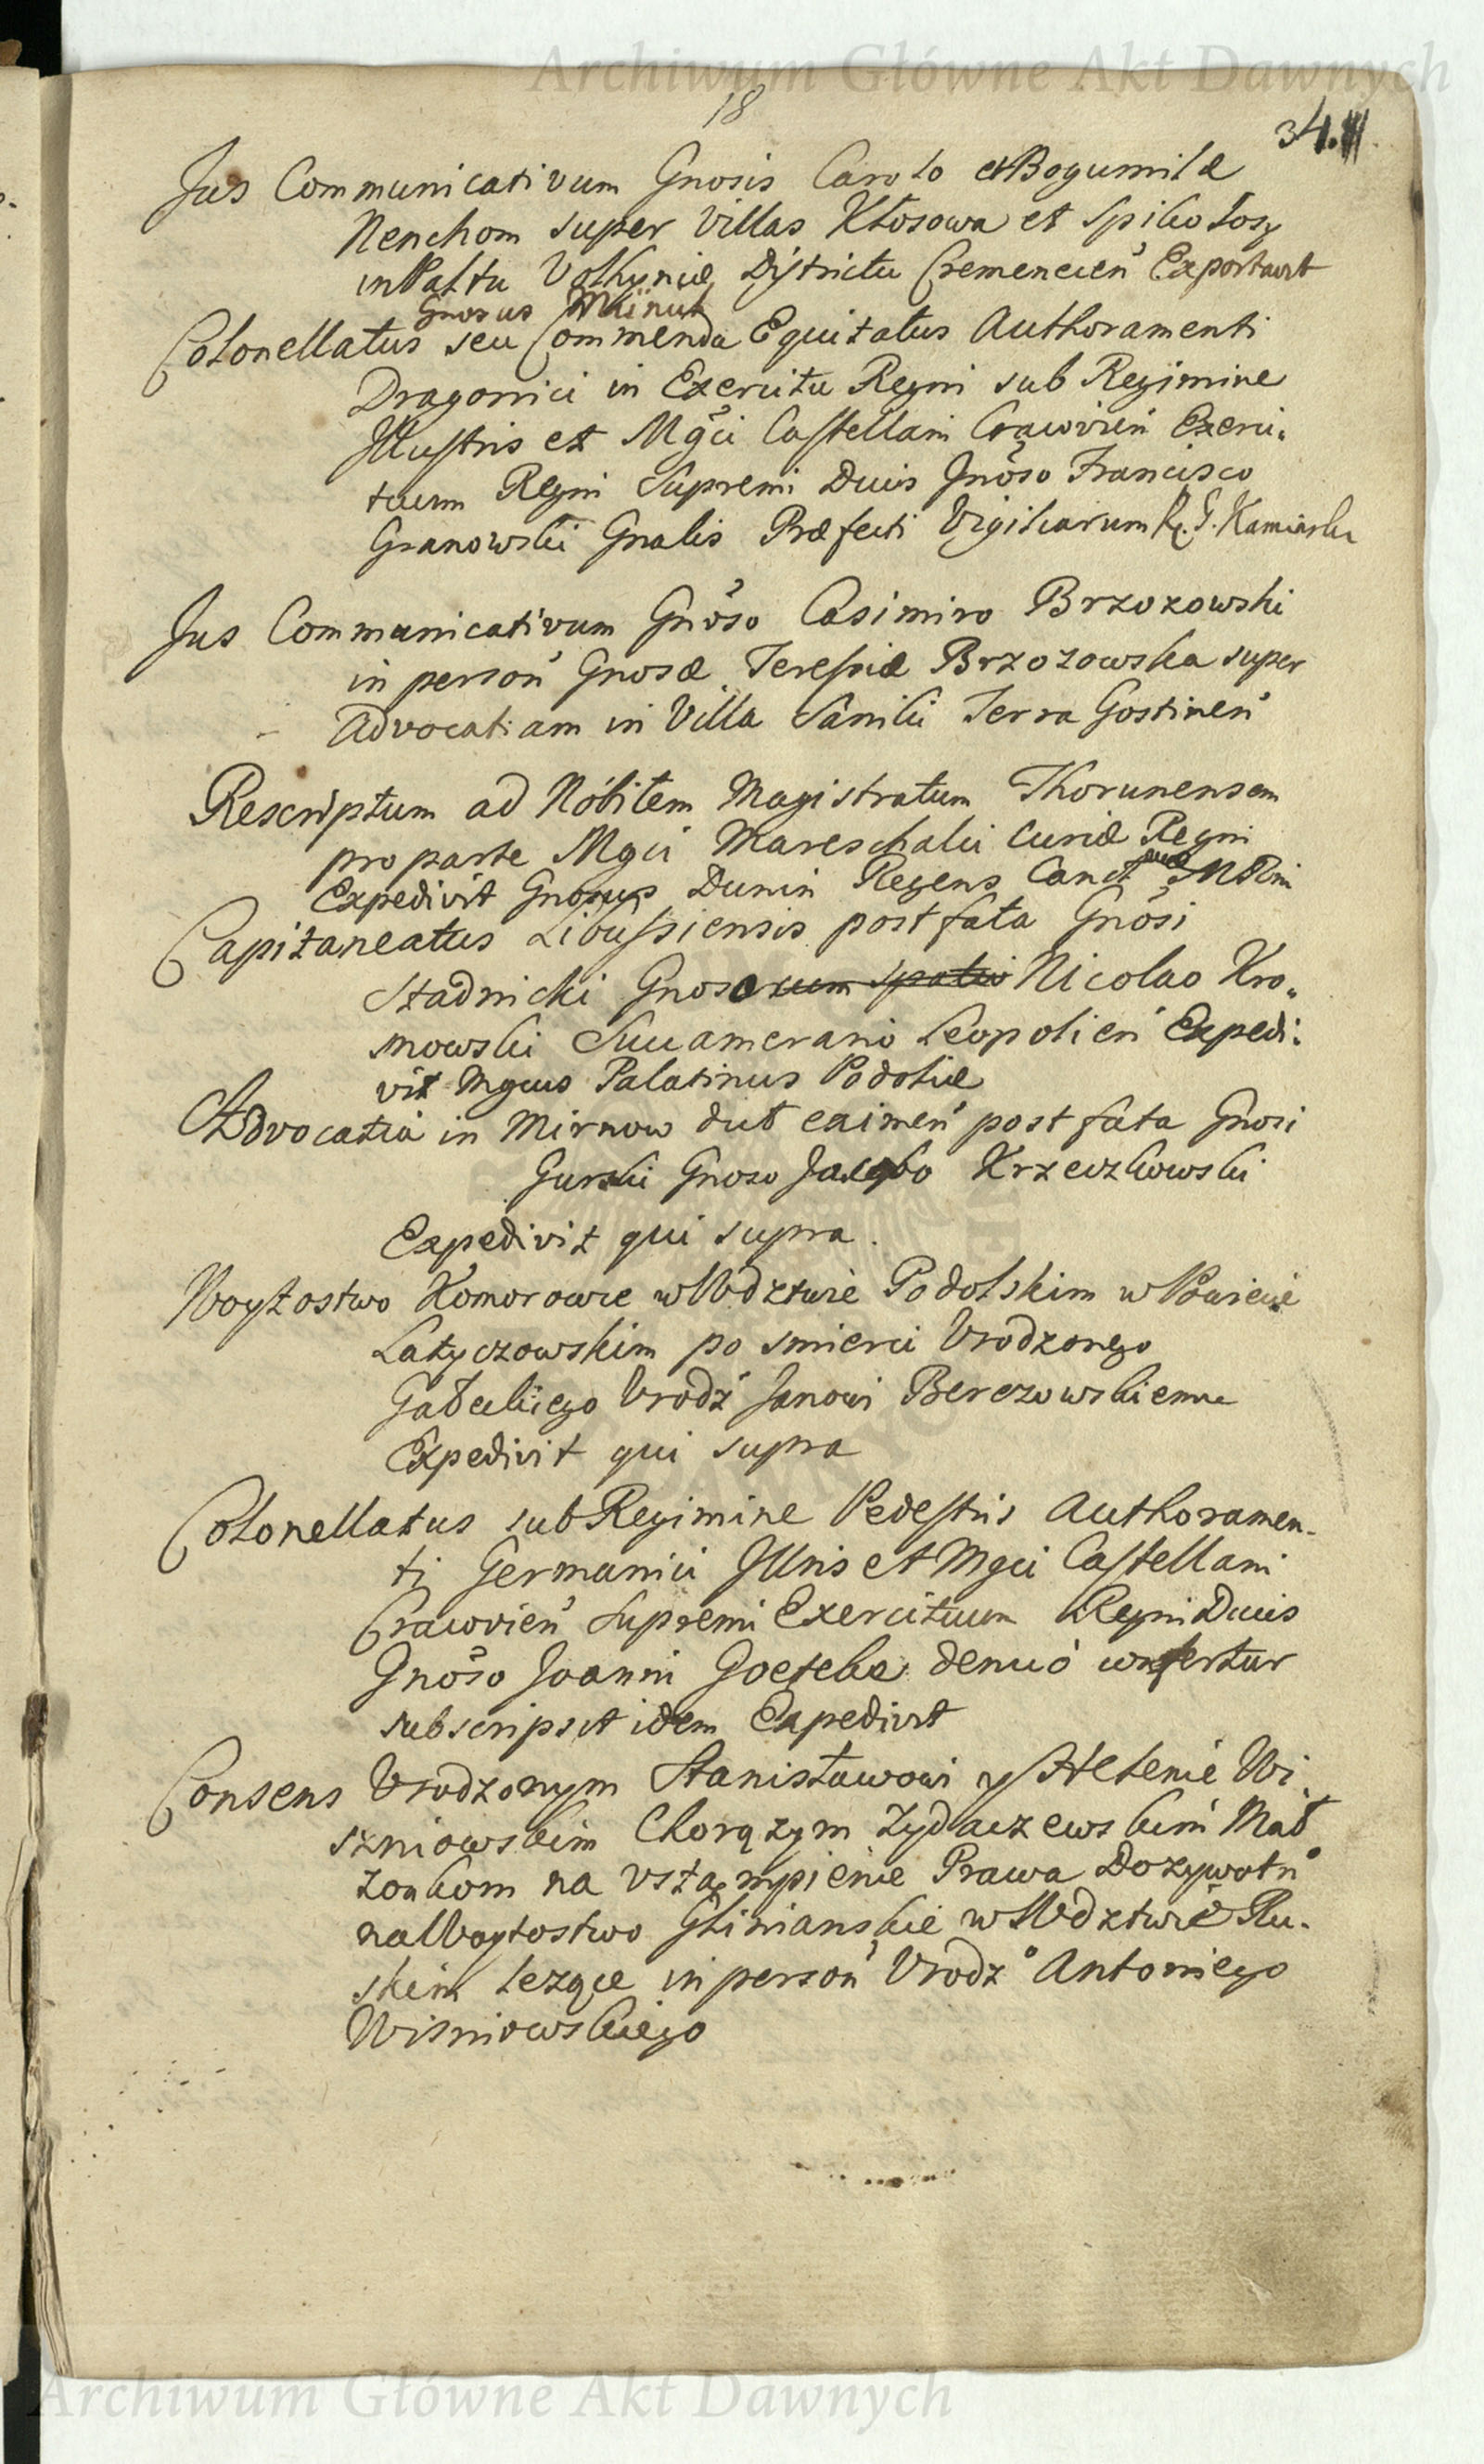 Archiwum Główne Akt Dawnych
18
34.
Jus Communicativum Gnosis Carolo et Bogumilæ
Nenchom super Villas Kłosowa et Spikołosy
in Paltu Volhyniæ Districtu Cremenecen Exportavit
Gnosus Minut
Colonellatus seu Commenda Equitatus Authoramenti
Dragonici in Exercitu Regni sub Regimine
Illustris et Mgci Castellani Cracovien Exerci-
tuum Regni Supremi Ducis Gnoso Francisco
Granowski Gnalis Præfecti Vigiliarum R. G. Kaminski
Jus Communicativum Gnoso Casimiro Brzozowski
in person Gnosæ Teressiæ Brzozowska super
Advocatiam in Villa Saniki Terra Gostinen
Rescriptum ad Nobilem Magistratum Thorunensem
pro parte Mgci Mareschalci Curiæ Regni
Expedivit Gnosus Dunin Regens Canc
Capitaneatus Libussiensis post fata Gnosi
Stadnicki Gnoso Nicolao Kro-
nowski Succamerario Leopolien Expedi:
vit Mgcus Palatinus Podoliæ
Advocatia in Mirnow post fata Gnosi
Gurski Gnoso Jacobo Krzeczkowski
Expedivit qui supra.
Woytostwo Komorowce w Wdztwie Podolskim w Powiecie
Latyczowskim po smierci Vrodzonego
Vrodz Janowi Berezowskiemu
Expedivit qui supra
Colonellatus sub Regimine Pedestris Authoramen-
ti Germanici Illris et Mgci Castellani
Cracovien Supremi Exercituum Regni Ducis
Gnoso Joanni denuò confertur
subscripsit idem Expedivit
Consens Vrodzonym Stanisławowi y Helenie Wi-
szniowskim Chorązym Zydaczewskim Mał
zonkom na vstąmpienie Prawa Dozywotn
na Woytostwo Glinianskie w Wdztwie Ru-
skim lezące in person Vrodz Antoniego
Wisniowskiego
Archiwum Główne Akt Dawnych